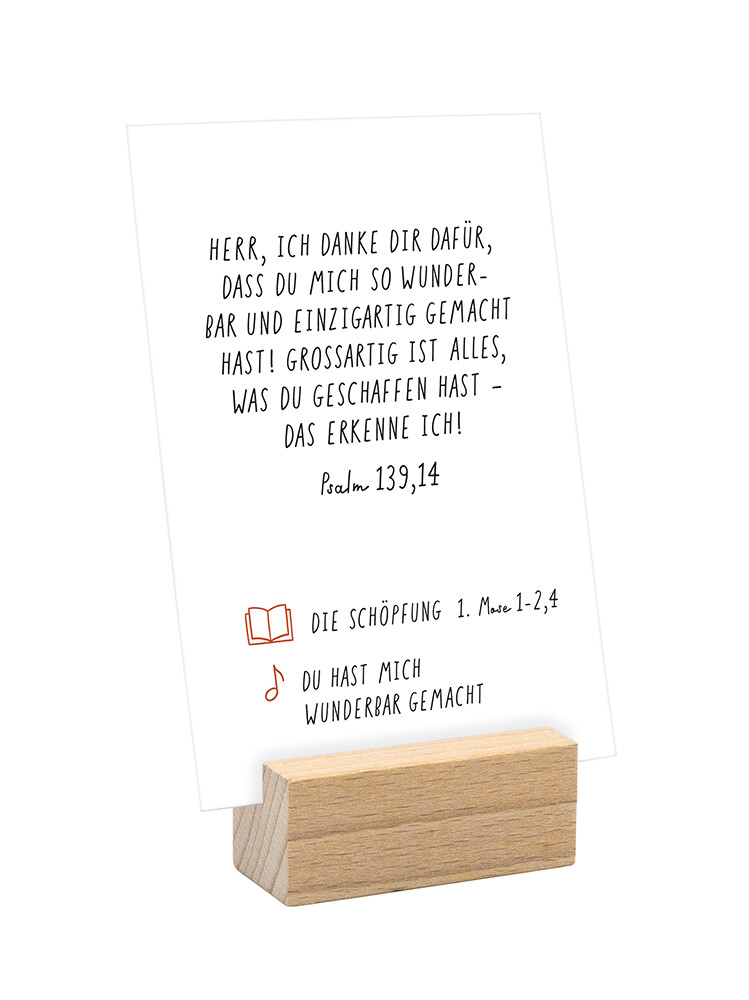 HERR, ICH DANKE DIR DAFÜR,
DASS DU MICH SO WUNDER-
BAR UND EINZIGARTIG GEMACHT
HAST! GROSSARTIG IST ALLES,
WAS DU GESCHAFFEN HAST –
DAS ERKENNE ICH!
Psalm 139,14
DIE SCHÖPFUNG 1. Mose 1-2,4
DU HAST MICH
WUNDERBAR GEMACHT